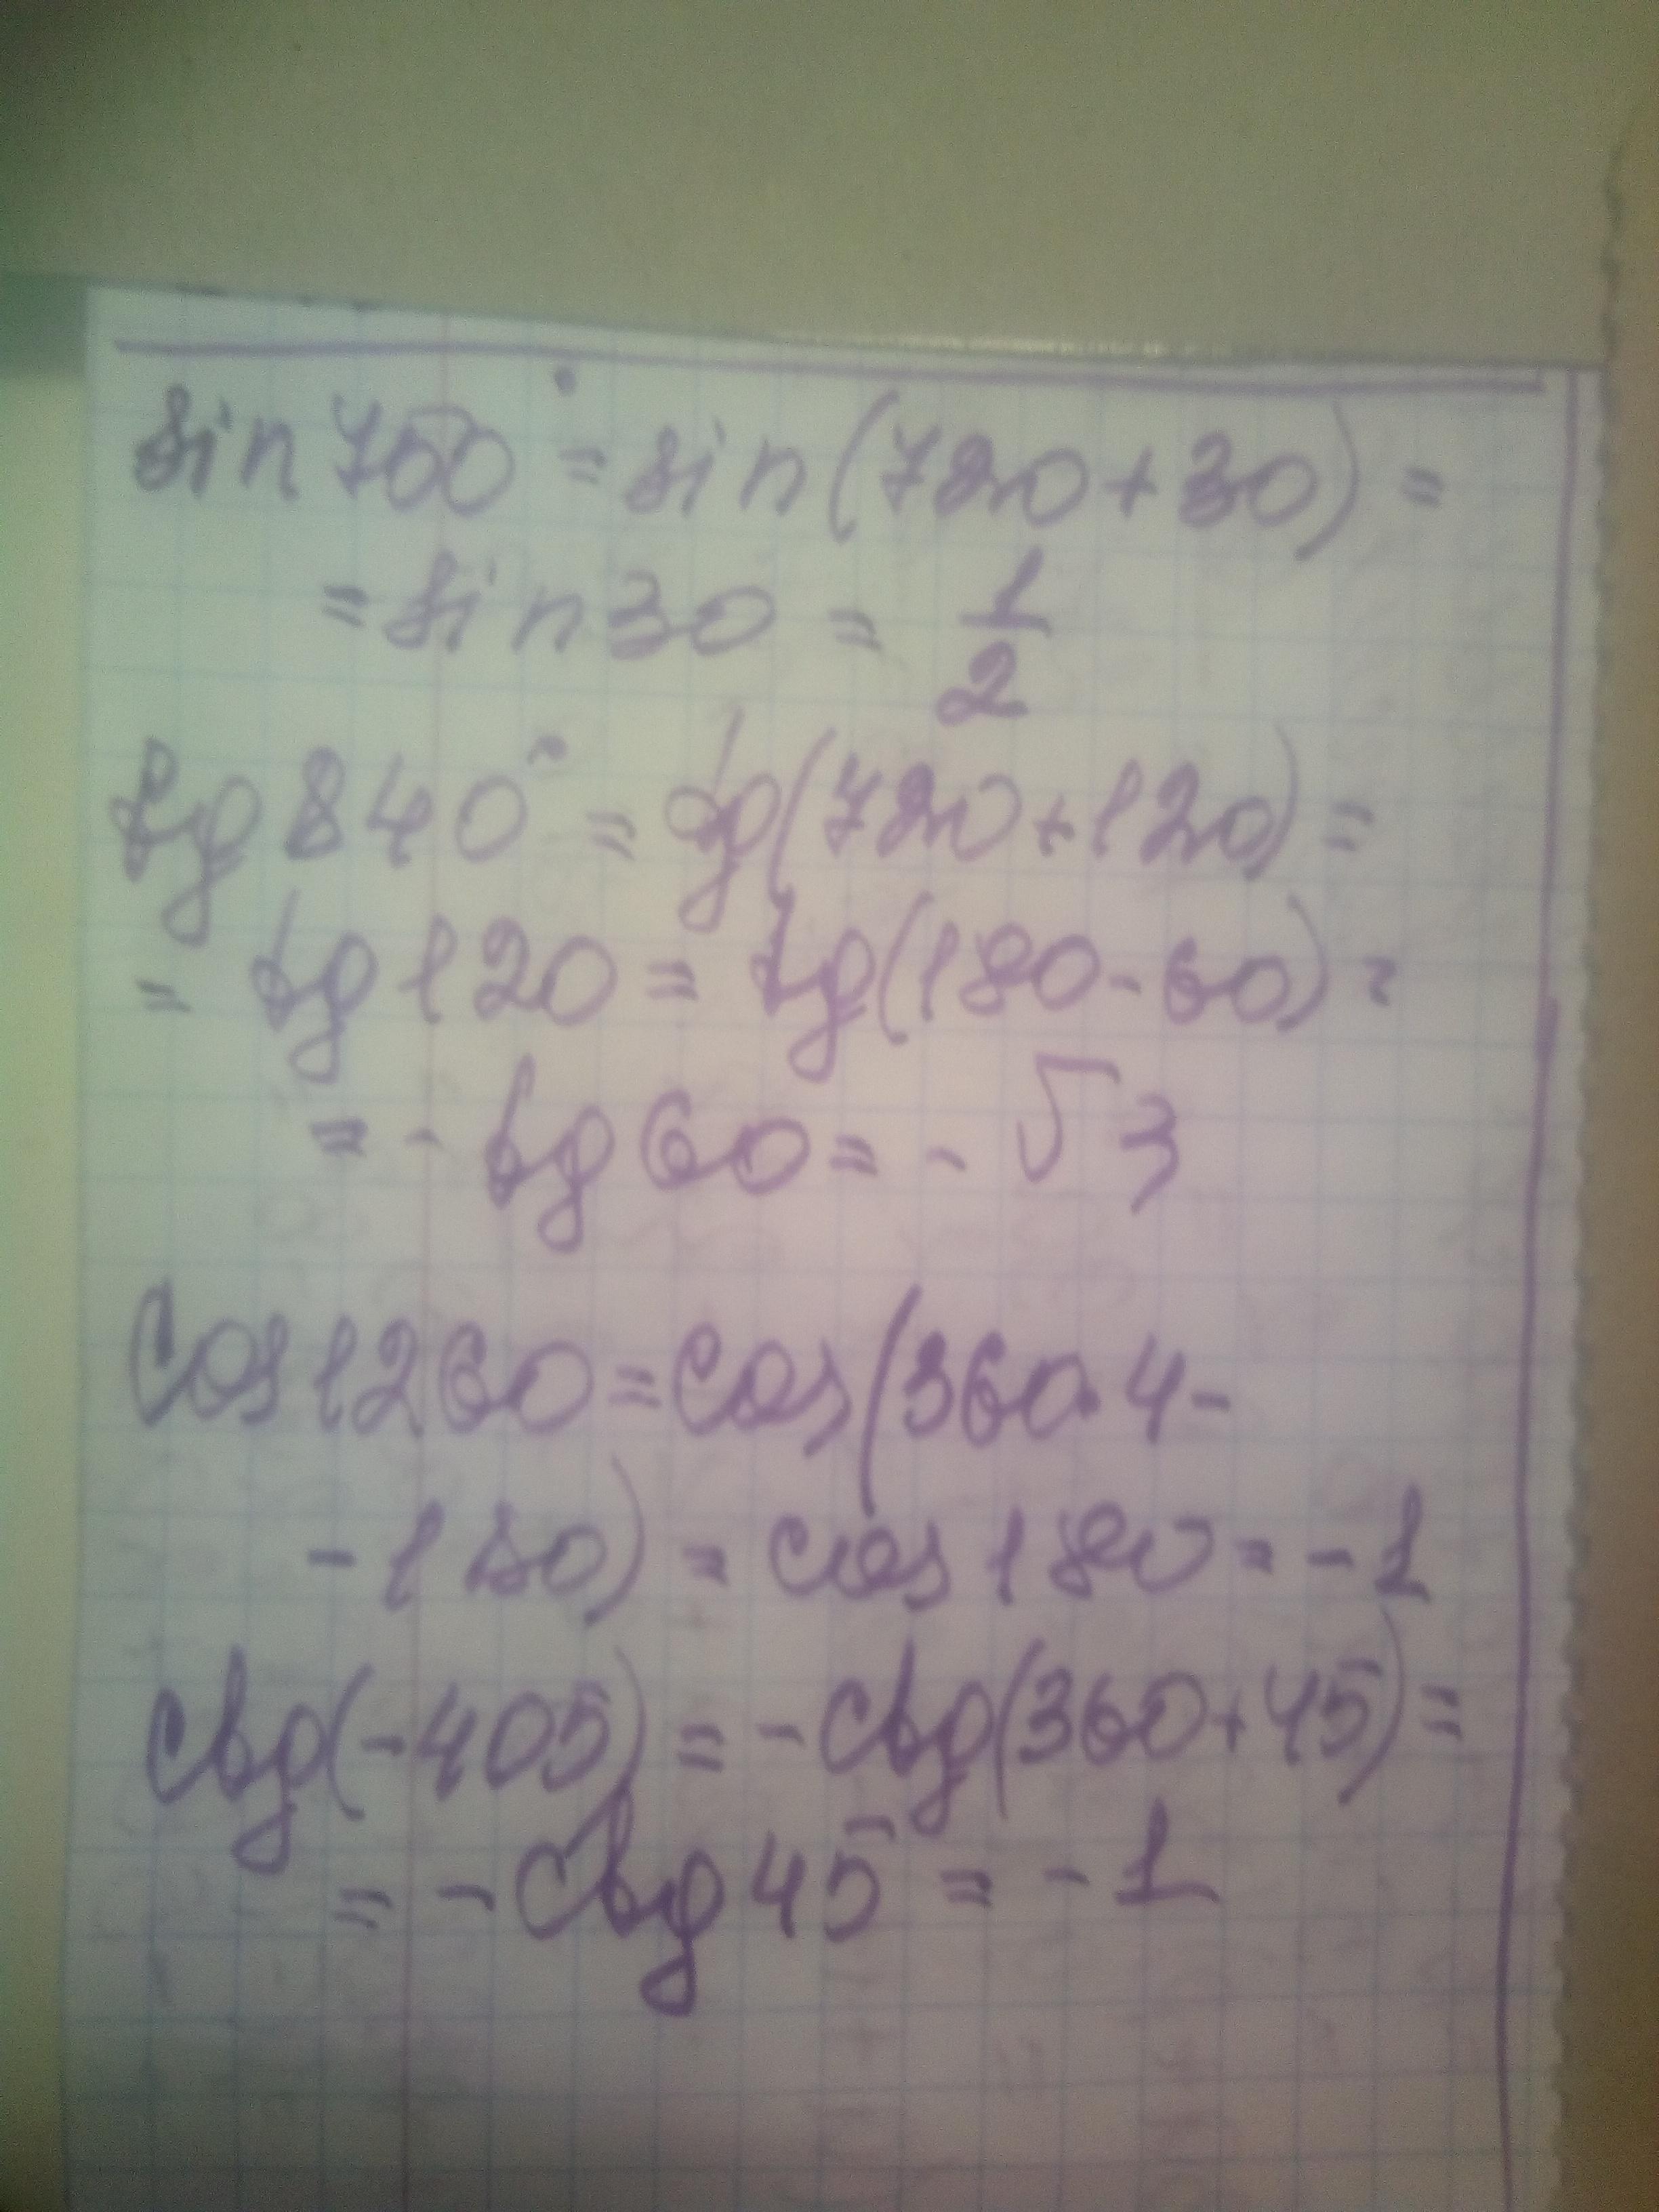 sin 750° = sin(720+30) =
= sin 30 = 1/2
tg 840° = tg(720+120) =
= tg 120 = tg(180-60) =
= - tg 60 = - √3
Cos 1260 = Cos(360·4-
-180) = cos 180 = -1
ctg(-405) = -ctg(360+45) =
= -ctg 45 = -1